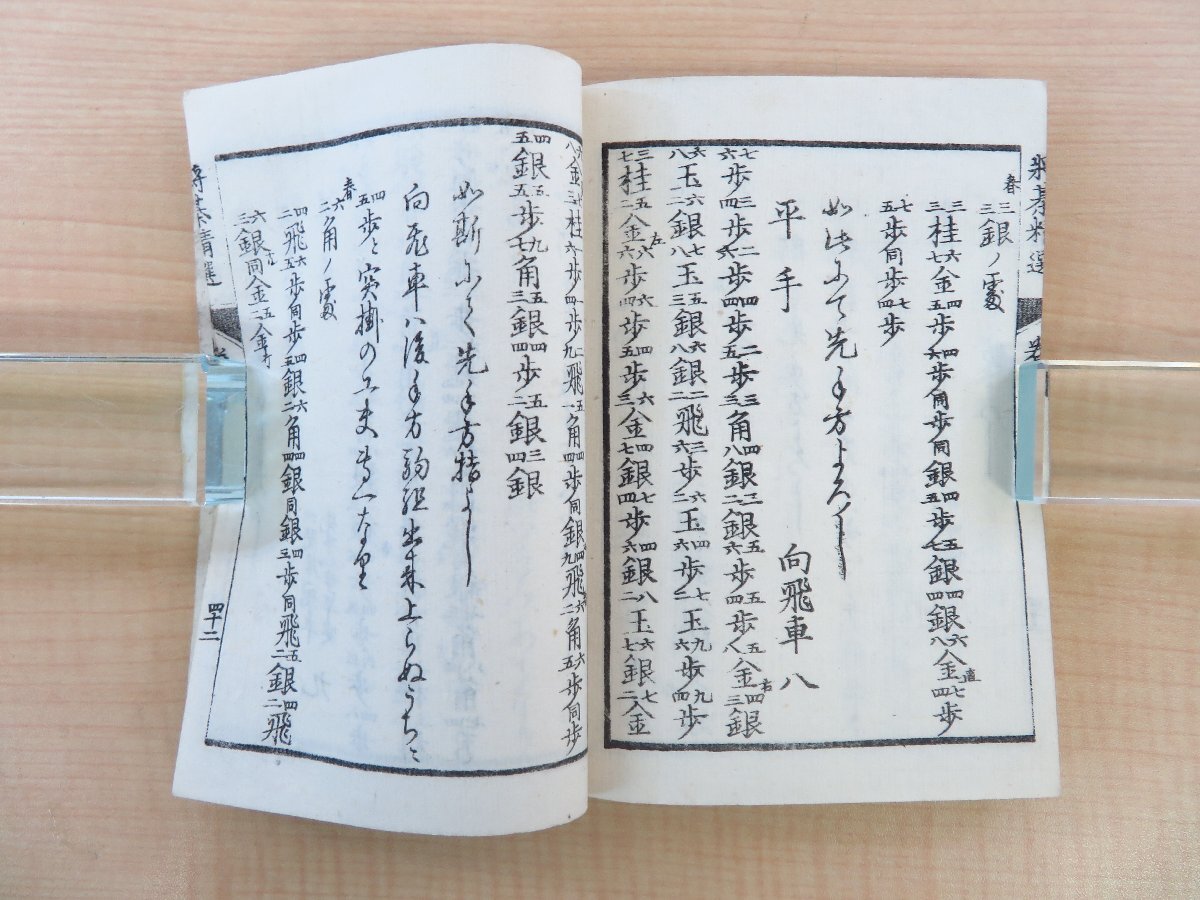 将棊精選
春 三三銀ノ変
三三桂六七金四五歩四六歩同歩同銀四五歩五七銀四四銀六八金直七四歩
七五歩同歩七四歩
如此にて先手方よろし
平手 向飛車八
七六歩三四歩二六歩四四歩二五歩三三角四八銀三二銀五六歩五四歩五八金右四三銀
六八玉六二銀七八玉五三銀六八銀二二飛三六歩六二玉四六歩七二玉九六歩九四歩
三七桂五二金左六六歩六四歩四五歩六三金四七銀七四歩四六銀八二玉六七銀七二金
桂 歩 歩二九飛五一角四四歩同銀四九飛六二角五五歩同歩
四五銀五五歩九七角五三銀四四歩五二銀三四銀
如斯にて先手方指よし
向飛車ハ後手方駒組出来上らぬうちニ
四五歩と突掛の工夫専一なり
春 六二角ノ変
四二飛六五歩同歩四五銀六二角四四銀同銀四三歩同飛五二銀四二飛
六三銀成同金五二金打
将棊精選
四十二